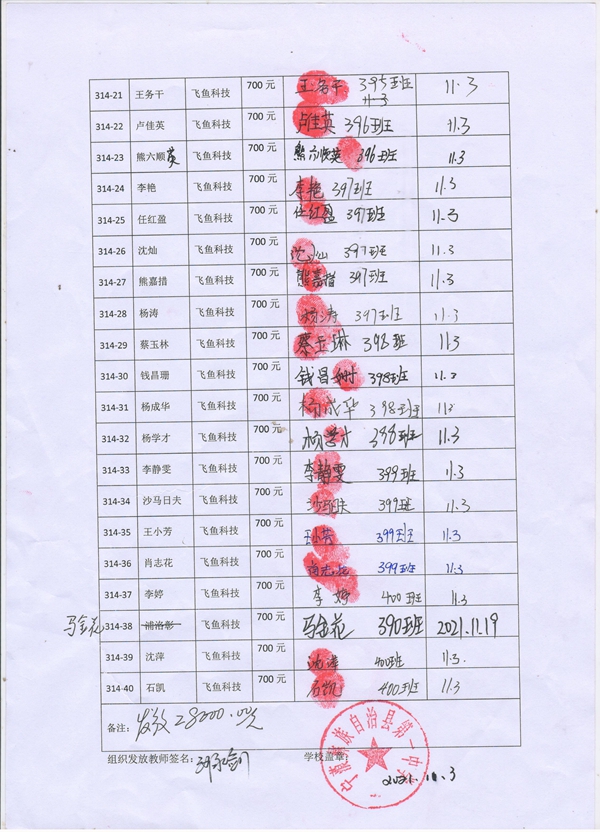 314-21 王务干 飞鱼科技 700 元 王务干 395班 11.3
11.3
314-22 卢佳英 飞鱼科技 700 元 卢佳英 396班 11.3
314-23 熊六顺英 飞鱼科技 700 元 熊六顺英 396班 11.3
314-24 李艳 飞鱼科技 700 元 李艳 397班 11.3
314-25 任红盈 飞鱼科技 700 元 任红盈 397班 11.3
314-26 沈灿 飞鱼科技 700 元 沈灿 397班 11.3
314-27 熊嘉措 飞鱼科技 700 元 熊嘉措 397班 11.3
314-28 杨涛 飞鱼科技 700 元 杨涛 397班 11.3
314-29 蔡玉林 飞鱼科技 700 元 蔡玉琳 398班 11.3
314-30 钱昌珊 飞鱼科技 700 元 钱昌珊 398班 11.3
314-31 杨成华 飞鱼科技 700 元 杨成华 398班 11.3
314-32 杨学才 飞鱼科技 700 元 杨学才 398班 11.3
314-33 李静雯 飞鱼科技 700 元 李静雯 399班 11.3
314-34 沙马日夫 飞鱼科技 700 元 沙马日夫 399班 11.3
314-35 王小芳 飞鱼科技 700 元 王小芳 399班 11.3
314-36 肖志花 飞鱼科技 700 元 肖志花 399班 11.3
314-37 李婷 飞鱼科技 700 元 李婷 400班 11.3
马金花 314-38 浦洛彰 飞鱼科技 700 元 马金花 390班 2021.11.19
314-39 沈萍 飞鱼科技 700 元 沈萍 400班 11.3.
314-40 石凯 飞鱼科技 700 元 石凯 400班 11.3
备注: 发放28000.00元
组织发放教师签名: 学校盖章:
族自治县第一中学
2021.11.3